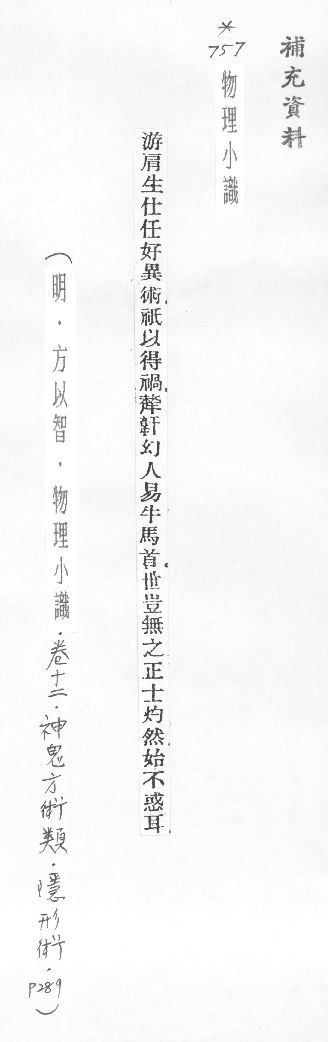 補充資料
*
757 物理小識
游肩生仕任好異術，祇以得禍，犛靬幻人易牛馬首，世豈無之，正士灼然，始不惑耳。
（明．方以智．物理小識．卷十二．神鬼方術類．隱形術．P289）